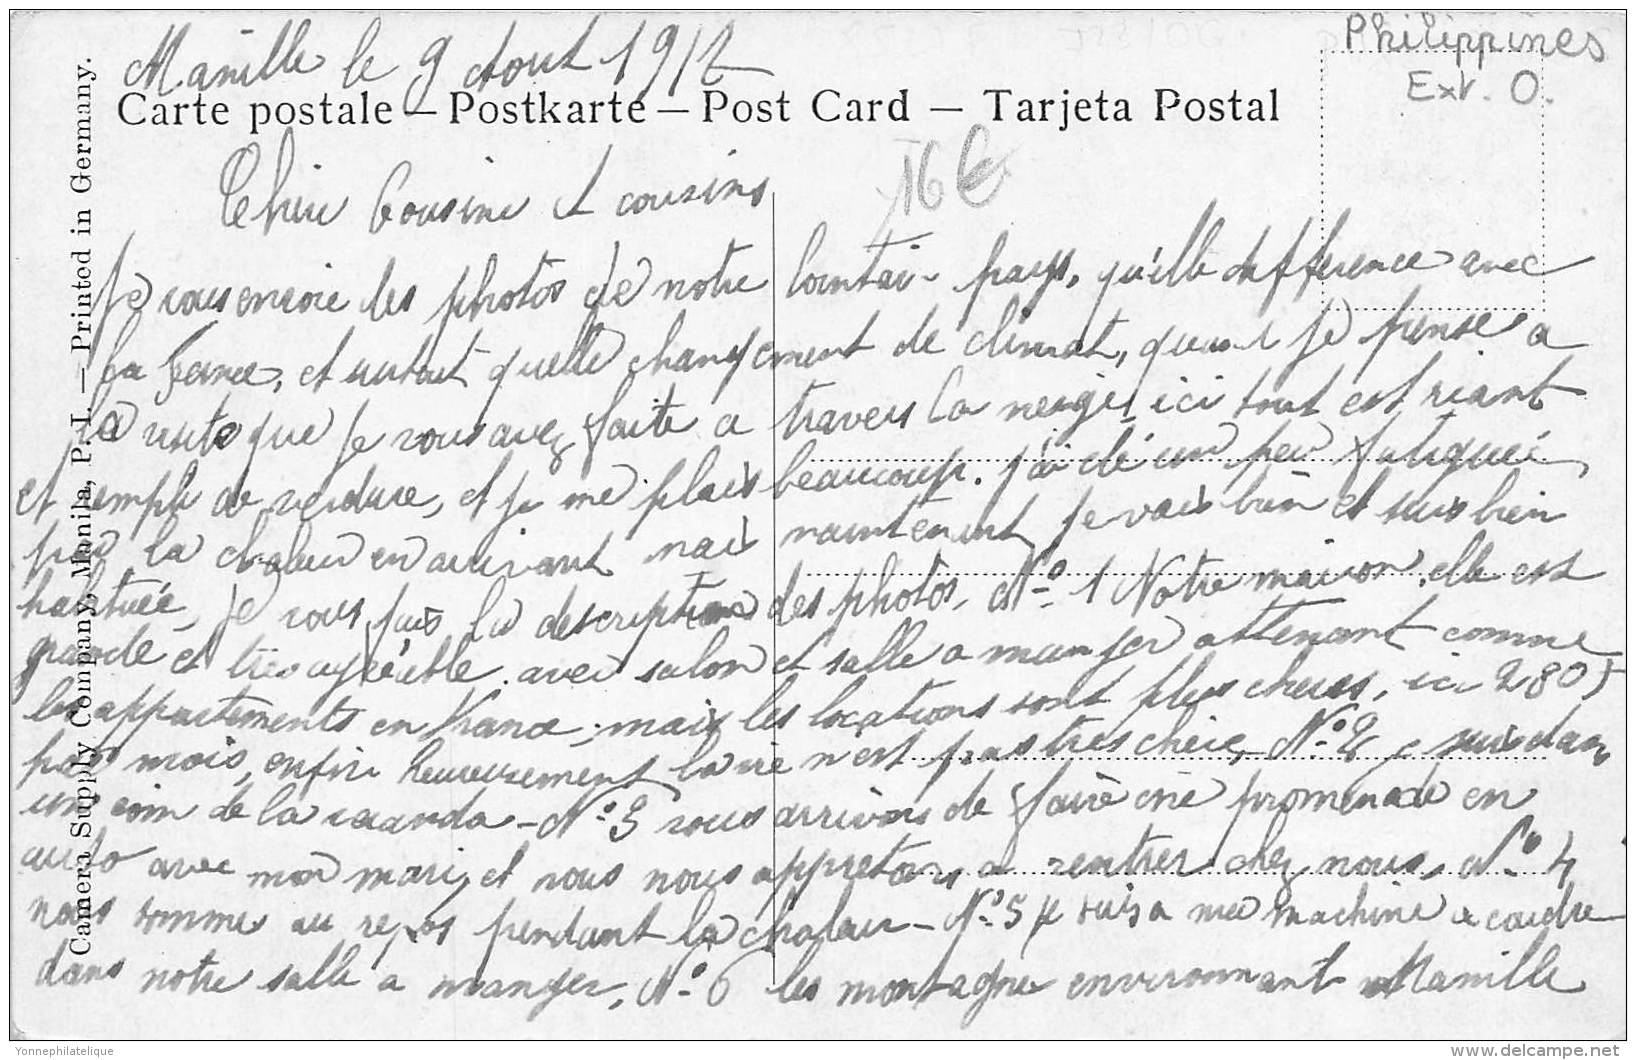 Philippines
Ext. O.
Manille le 9 Aout 1912
Carte postale — Postkarte — Post Card — Tarjeta Postal
16 €
Chère Cousine et cousins
Je vous envoie les photos de notre lointain pays, qu'elle difference avec
la France, et surtout quelle changement de climat, quand je pense a
la visite que je vous avez faite a travers la neige, ici tout est riant
et rempli de verdure, et je me plais beaucoup. j'ai été un peu fatiguée
par la chaleur en arrivant mais maintenant je vais bien et suis bien
habituée, je vous fais la description des photos, No 1 Notre maison, elle est
grande et très agréable avec salon et salle a manger attenant comme
les appartements en France, mais les locations sont plus cheres, ici 280f
par mois, enfin heureusement la vie n'est pas tres chere, No 2 je suis dans
un coin de la veranda - No 3 nous arrivons de faire une promenade en
auto avec mon mari, et nous nous appretons a rentrer chez nous, No 4
nous sommes au repos pendant la chaleur - No 5 je suis a ma machine a coudre
dans notre salle a manger, No 6 les montagne environnant Manille
Camera Supply Company, Manila, P. I. — Printed in Germany.
Yonnephilatelique
delcampe.net